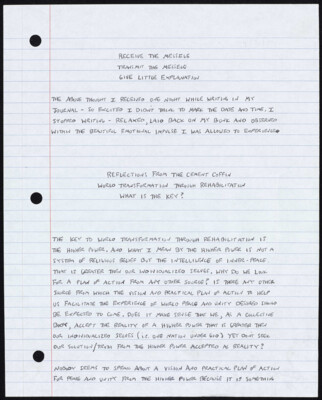 RECEIVE THE MESSAGE
TRANSMIT THE MESSAGE
GIVE LITTLE EXPLANATION
THE ABOVE THOUGHT I RECEIVED ONE NIGHT WHILE WRITING IN MY
JOURNAL - SO EXCITED I DIDN'T THINK TO MARK THE DATE AND TIME. I
STOPPED WRITING - RELAXED, LAID BACK ON MY BUNK AND OBSERVED
WITHIN THE BEAUTIFUL EMOTIONAL IMPULSE I WAS ALLOWED TO EXPERIENCE
REFLECTIONS FROM THE CEMENT COFFIN
WORLD TRANSFORMATION THROUGH REHABILITATION
WHAT IS THE KEY?
THE KEY TO WORLD TRANSFORMATION THROUGH REHABILITATION IS
THE HIGHER POWER. AND WHAT I MEAN BY THE HIGHER POWER IS NOT A
SYSTEM OF RELIGIOUS BELIEF BUT THE INTELLIGENCE OF INNER-PEACE
THAT IS GREATER THEN OUR INDIVIDUALIZED SELVES. WHY DO WE LOOK
FOR A PLAN OF ACTION FROM ANY OTHER SOURCE? IS THERE ANY OTHER
SOURCE FROM WHICH THE VISION AND PRACTICAL PLAN OF ACTION TO HELP
US FACILITATE THE EXPERIENCE OF WORLD PEACE AND UNITY DESIRED COULD
BE EXPECTED TO COME. DOES IT MAKE SENSE THAT WE, AS A COLLECTIVE
ACCEPT THE REALITY OF A HIGHER POWER THAT IS GREATER THEN
OUR INDIVIDUALIZED SELVES (I.E. OUR NATION UNDER GOD) YET DON'T SEEK
OUR SOLUTION FROM THE HIGHER POWER ACCEPTED AS REALITY?
NOBODY SEEMS TO SPEAK ABOUT A VISION AND PRACTICAL PLAN OF ACTION
FOR PEACE AND UNITY FROM THE HIGHER POWER BECAUSE IT IS SOMETHING